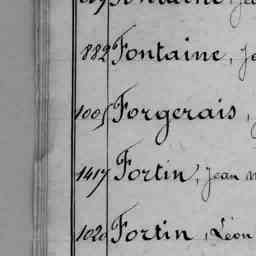 882 Fontaine, Je
1005 Forgerais,
1417 Fortin, Jean
1020 Fortin, Léon